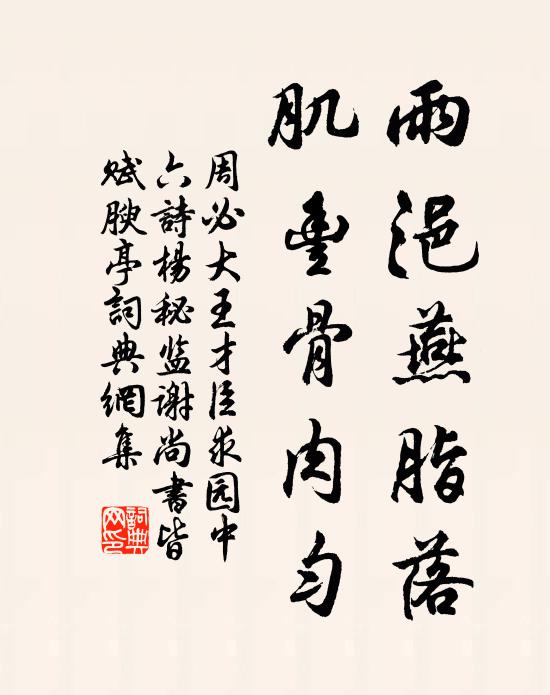 雨浥燕脂落
肌豊骨肉勻
周必大王才臣求园中
六詩楊秘监谢尚書皆
赋腴亭詞典網集
詞典网印